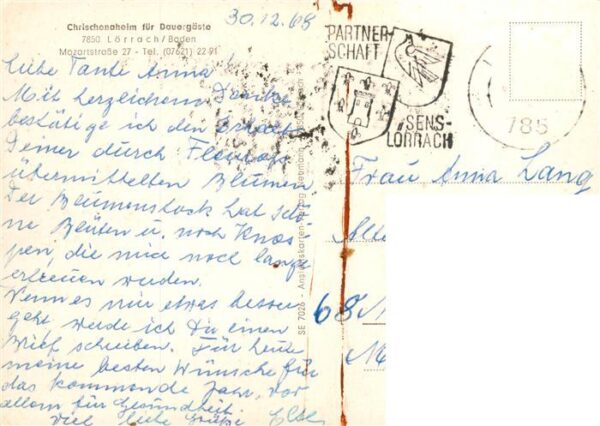 30.12.68
Chrischonaheim für Dauergäste
7850 Lörrach/Baden
Mozartstraße 27 - Tel. (07621) 22 91
Liebe Tante Anna!
Mit herzlichem Danke
bestätige ich den
Deiner durch Fleurop
übermittelten Blumen.
Der Blumenstock hat schö-
ne Blüten u. noch Knos-
pen, die mich noch lange
erfreuen werden.
Wenn es mir etwas besser
geht werde ich Dir einen
Brief schreiben. Für heute
meine besten Wünsche für
das kommende Jahr, vor
allem für Gesundheit.
Viel liebe Grüße Else
SE 7026 - Ansichtskarten-Verlag
PARTNER-
SCHAFT
SENS-
LÖRRACH
785
Frau Anna Lang
68